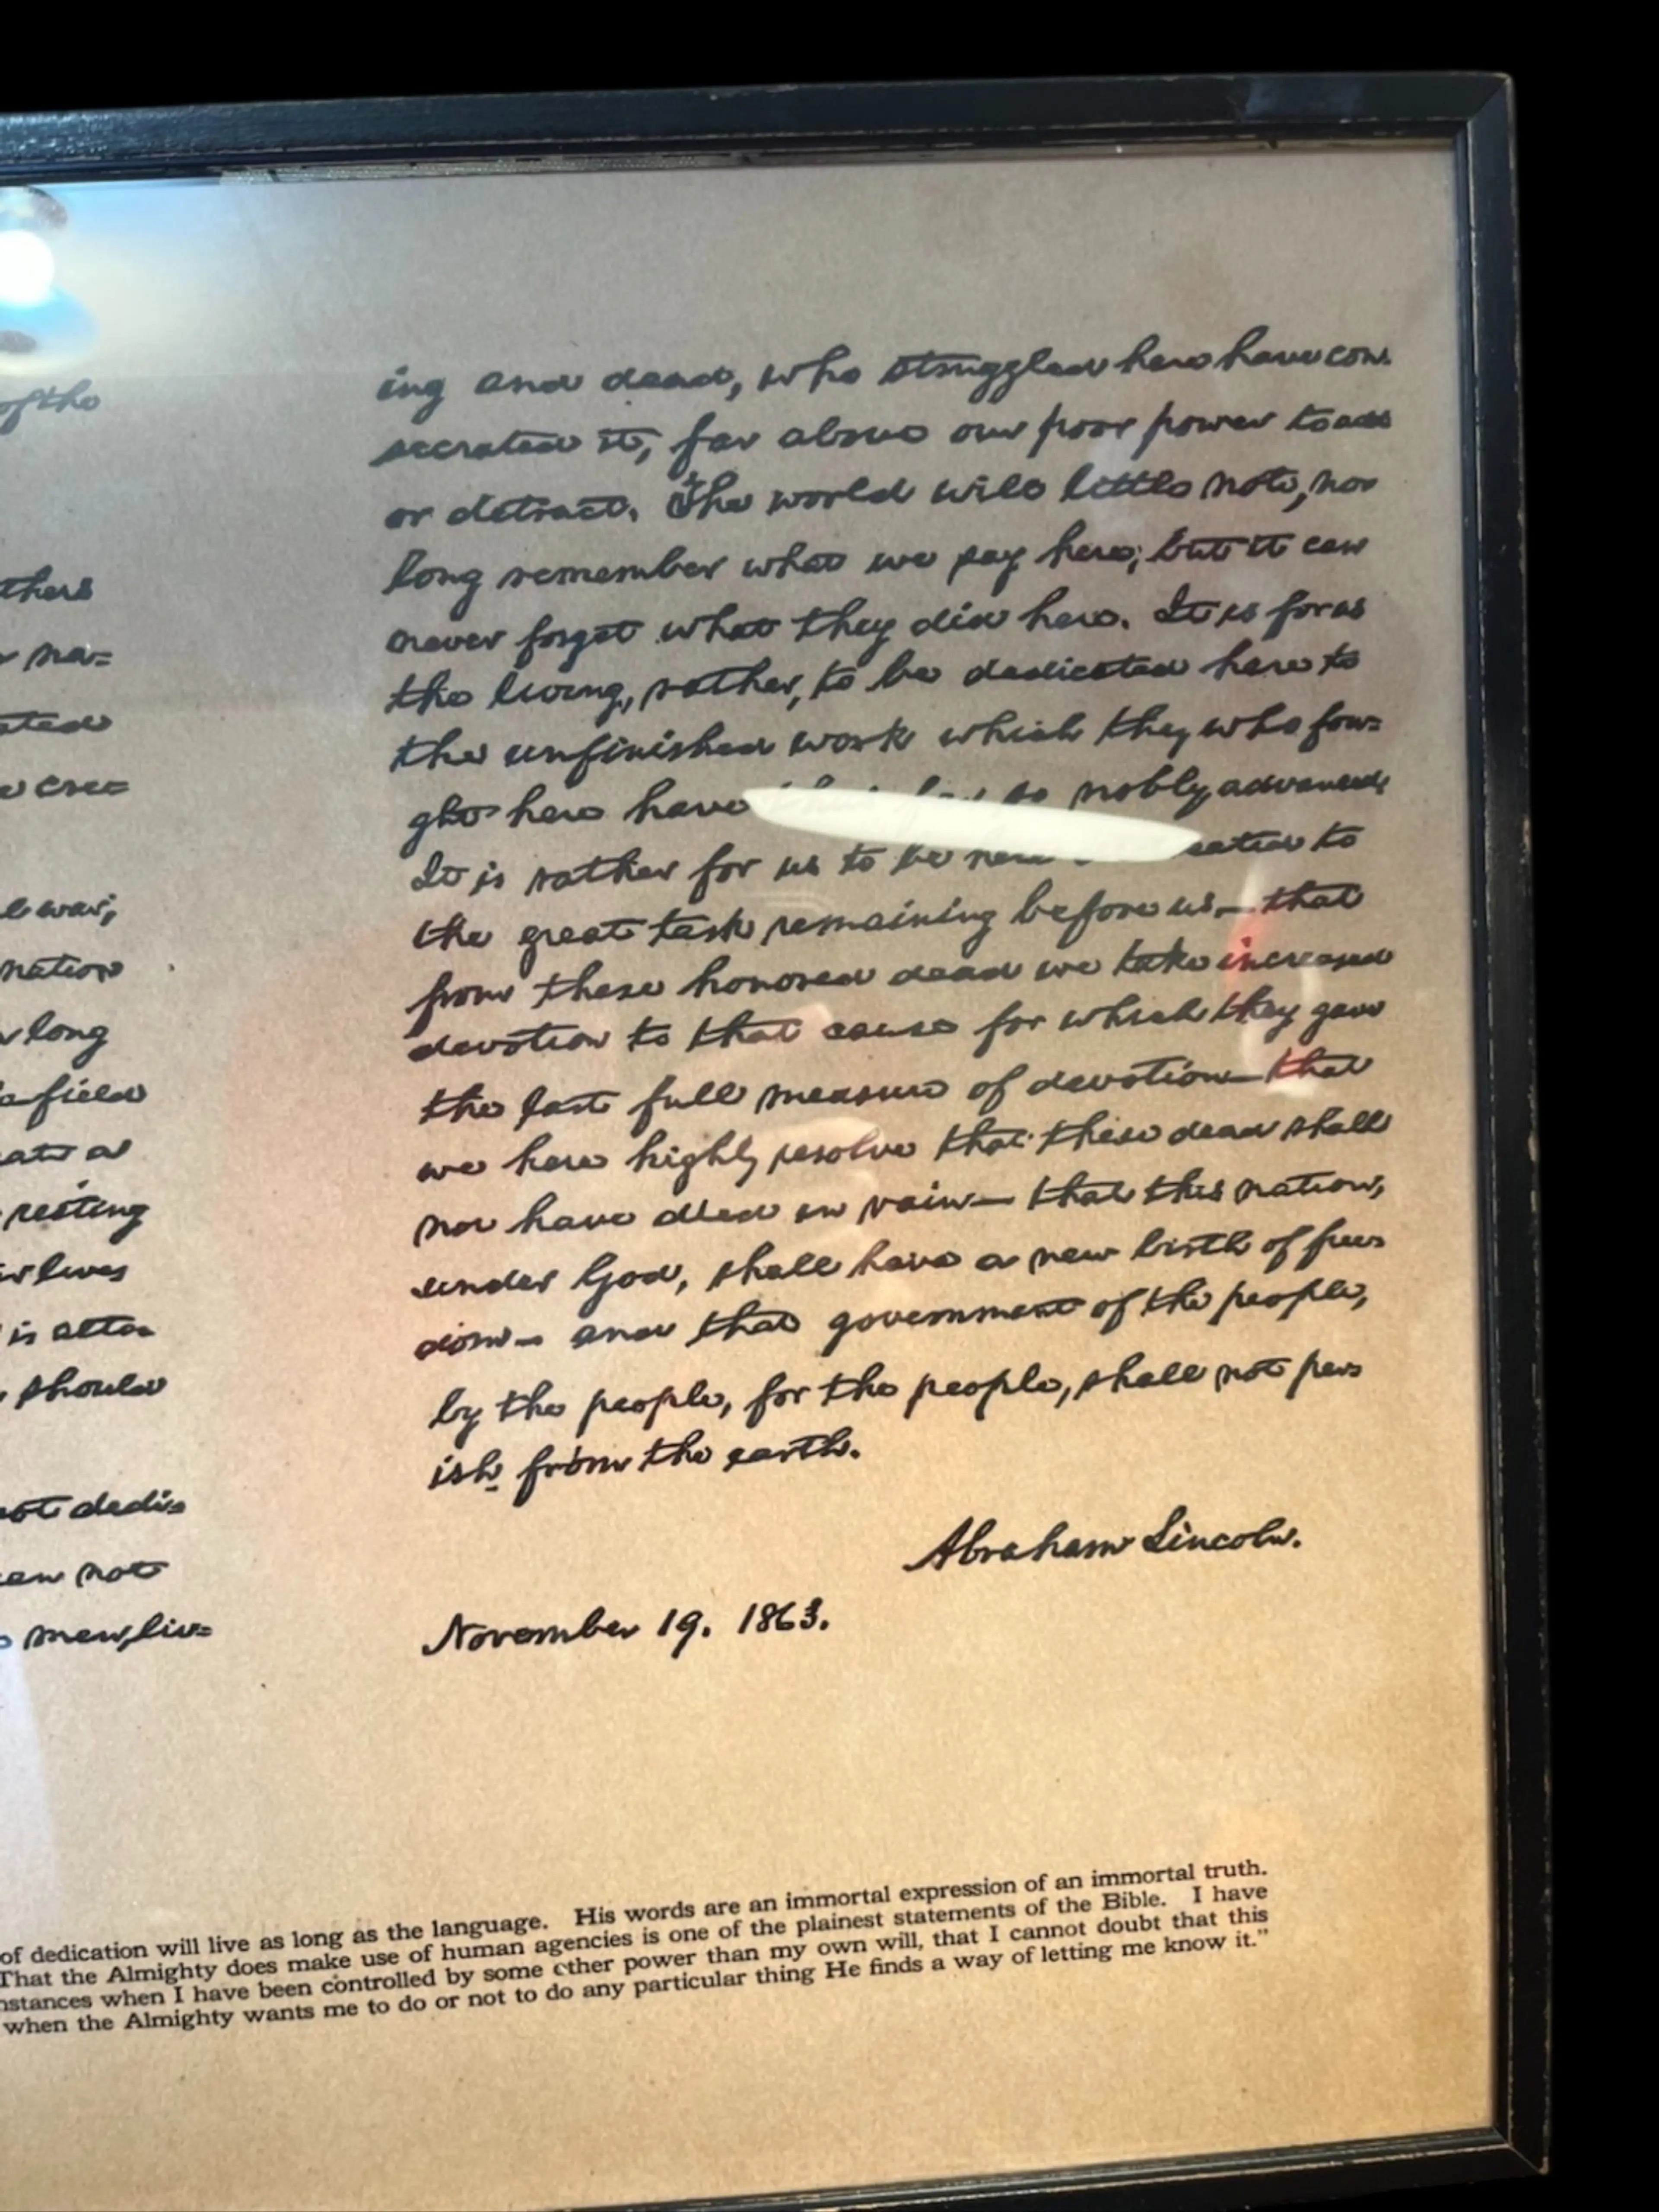 of the
thers
na=
ated
cree=
war;
nation
long
field
ate a
resting
lives
is alto=
should
not dedi=
can not
men, liv=
ing and dead, who struggled here have con=
secrated it, far above our poor power to add
or detract. The world will little note, nor
long remember what we say here; but it can
never forget what they did here. It is for us
the living, rather, to be dedicated here to
the unfinished work which they who fou=
ght here have so nobly advanced.
It is rather for us to be to
the great task remaining before us— that
from these honored dead we take increased
devotion to that cause for which they gave
the last full measure of devotion— that
we here highly resolve that these dead shall
not have died in vain— that this nation,
under God, shall have a new birth of free=
dom— and that government of the people,
by the people, for the people, shall not per=
ish from the earth.
Abraham Lincoln.
November 19. 1863.
of dedication will live as long as the language. His words are an immortal expression of an immortal truth.
That the Almighty does make use of human agencies is one of the plainest statements of the Bible. I have
nstances when I have been controlled by some other power than my own will, that I cannot doubt that this
when the Almighty wants me to do or not to do any particular thing He finds a way of letting me know it."